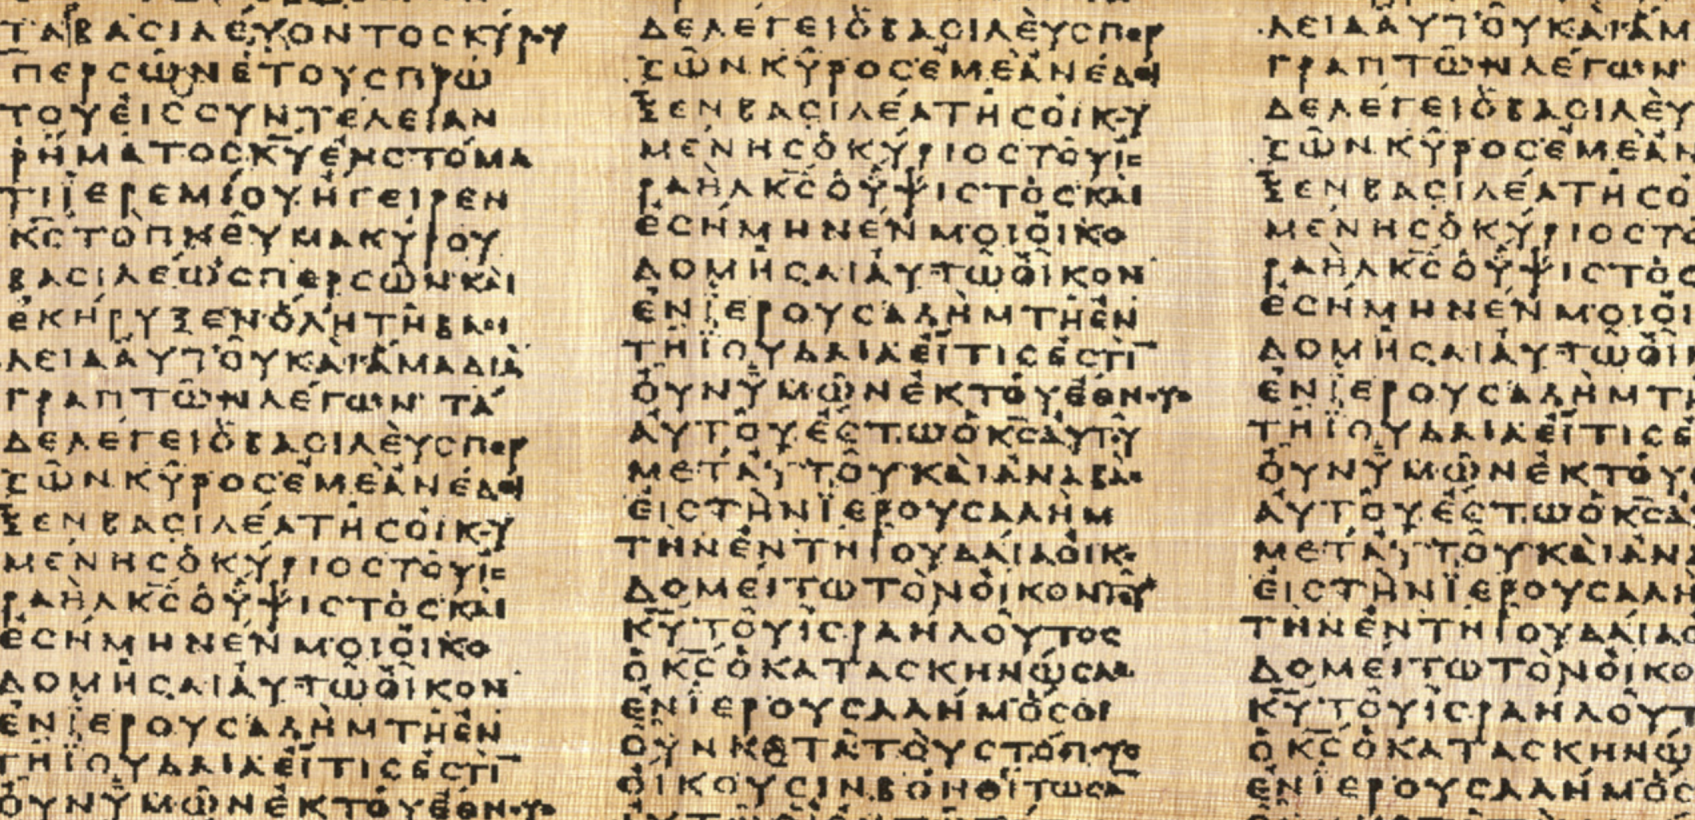 ΤΑΒΑϹΙΛΕΥΟΝΤΟϹΚΥΡΟΥ
ΠΕΡϹΩΝΕΤΟΥϹΠΡΩ
ΤΟΥΕΙϹϹΥΝΤΕΛΕΙΑΝ
ΡΗΜΑΤΟϹΚ̅Υ̅ΕΝϹΤΟΜΑ
ΤΙΙΕΡΕΜΙΟΥΗΓΕΙΡΕΝ
Κ̅Ϲ̅ΤΟΠΝΕΥΜΑΚΥΡΟΥ
ΒΑϹΙΛΕΩϹΠΕΡϹΩΝΚΑΙ
ΕΚΗΡΥΞΕΝΟΛΗΤΗΒΑϹΙ
ΛΕΙΑΑΥΤΟΥΚΑΙΑΜΑΔΙΑ
ΓΡΑΠΤΩΝΛΕΓΩΝΤΑ
ΔΕΛΕΓΕΙΟΒΑϹΙΛΕΥϹΠΕΡ
ϹΩΝΚΥΡΟϹΕΜΕΑΝΕΔΕΙ
ΞΕΝΒΑϹΙΛΕΑΤΗϹΟΙΚΟΥ
ΜΕΝΗϹΟΚΥΡΙΟϹΤΟΥΙϹ
ΡΑΗΛΚ̅Ϲ̅ΟΥΨΙϹΤΟϹΚΑΙ
ΕϹΗΜΗΝΕΝΜΟΙΟΙΚΟ
ΔΟΜΗϹΑΙΑΥΤΩΟΙΚΟΝ
ΕΝΙΕΡΟΥϹΑΛΗΜΤΗΕΝ
ΤΗΙΟΥΔΑΙΑΕΙΤΙϹΕϹΤΙ̅
ΟΥΝΥΜΩΝΕΚΤΟΥΕΘΝΟΥϹ
ΔΕΛΕΓΕΙΟΒΑϹΙΛΕΥϹΠΕΡ
ϹΩΝΚΥΡΟϹΕΜΕΑΝΕΔΕΙ
ΞΕΝΒΑϹΙΛΕΑΤΗϹΟΙΚΟΥ
ΜΕΝΗϹΟΚΥΡΙΟϹΤΟΥΙϹ
ΡΑΗΛΚ̅Ϲ̅ΟΥΨΙϹΤΟϹΚΑΙ
ΕϹΗΜΗΝΕΝΜΟΙΟΙΚΟ
ΔΟΜΗϹΑΙΑΥΤΩΟΙΚΟΝ
ΕΝΙΕΡΟΥϹΑΛΗΜΤΗΕΝ
ΤΗΙΟΥΔΑΙΑΕΙΤΙϹΕϹΤΙ̅
ΟΥΝΥΜΩΝΕΚΤΟΥΕΘΝΟΥϹ
ΑΥΤΟΥΕϹΤΩΟΚ̅Ϲ̅ΑΥΤΟΥ
ΜΕΤΑΥΤΟΥΚΑΙΑΝΑΒΑϹ
ΕΙϹΤΗΝΙΕΡΟΥϹΑΛΗΜ
ΤΗΝΕΝΤΗΙΟΥΔΑΙΑΟΙΚΟ
ΔΟΜΕΙΤΩΤΟΝΟΙΚΟΝΤΟΥ
Κ̅Υ̅ΤΟΥΙϹΡΑΗΛΟΥΤΟϹ
ΟΚ̅Ϲ̅ΟΚΑΤΑϹΚΗΝΩϹΑϹ
ΕΝΙΕΡΟΥϹΑΛΗΜΟϹΟΙ
ΟΥΝΚΑΤΑΤΟΥϹΤΟΠΟΥϹ
ΟΙΚΟΥϹΙΝΒΟΗΘΙΤΩϹΑ̅
ΛΕΙΑΑΥΤΟΥΚΑΙΑΜ
ΓΡΑΠΤΩΝΛΕΓΩΝ
ΔΕΛΕΓΕΙΟΒΑϹΙΛΕΥ
ϹΩΝΚΥΡΟϹΕΜΕΑΝ
ΞΕΝΒΑϹΙΛΕΑΤΗϹΟ
ΜΕΝΗϹΟΚΥΡΙΟϹΤΟ
ΡΑΗΛΚ̅Ϲ̅ΟΥΨΙϹΤΟϹ
ΕϹΗΜΗΝΕΝΜΟΙΟΙ
ΔΟΜΗϹΑΙΑΥΤΩΟΙΚ
ΕΝΙΕΡΟΥϹΑΛΗΜΤΗ
ΤΗΙΟΥΔΑΙΑΕΙΤΙϹΕ
ΟΥΝΥΜΩΝΕΚΤΟΥΕ
ΑΥΤΟΥΕϹΤΩΟΚ̅Ϲ̅Α
ΜΕΤΑΥΤΟΥΚΑΙΑΝΑ
ΕΙϹΤΗΝΙΕΡΟΥϹΑΛΗ
ΤΗΝΕΝΤΗΙΟΥΔΑΙΑΟ
ΔΟΜΕΙΤΩΤΟΝΟΙΚΟ
Κ̅Υ̅ΤΟΥΙϹΡΑΗΛΟΥΤ
ΟΚ̅Ϲ̅ΟΚΑΤΑϹΚΗΝΩ
ΕΝΙΕΡΟΥϹΑΛΗΜΟϹ